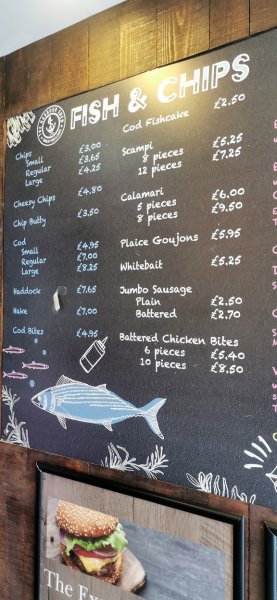 FISH & CHIPS
Chips
Small £3.00
Regular £3.65
Large £4.25
Cheesy Chips £4.80
Chip Butty £3.50
Cod
Small £4.95
Regular £7.00
Large £8.25
Haddock £7.65
Hake £7.00
Cod Bites £4.95
Cod Fishcake £2.50
Scampi
8 pieces £5.25
12 pieces £7.25
Calamari
5 pieces £6.00
8 pieces £9.50
Plaice Goujons £5.95
Whitebait £5.25
Jumbo Sausage
Plain £2.50
Battered £2.70
Battered Chicken Bites
6 pieces £5.40
10 pieces £8.50
The